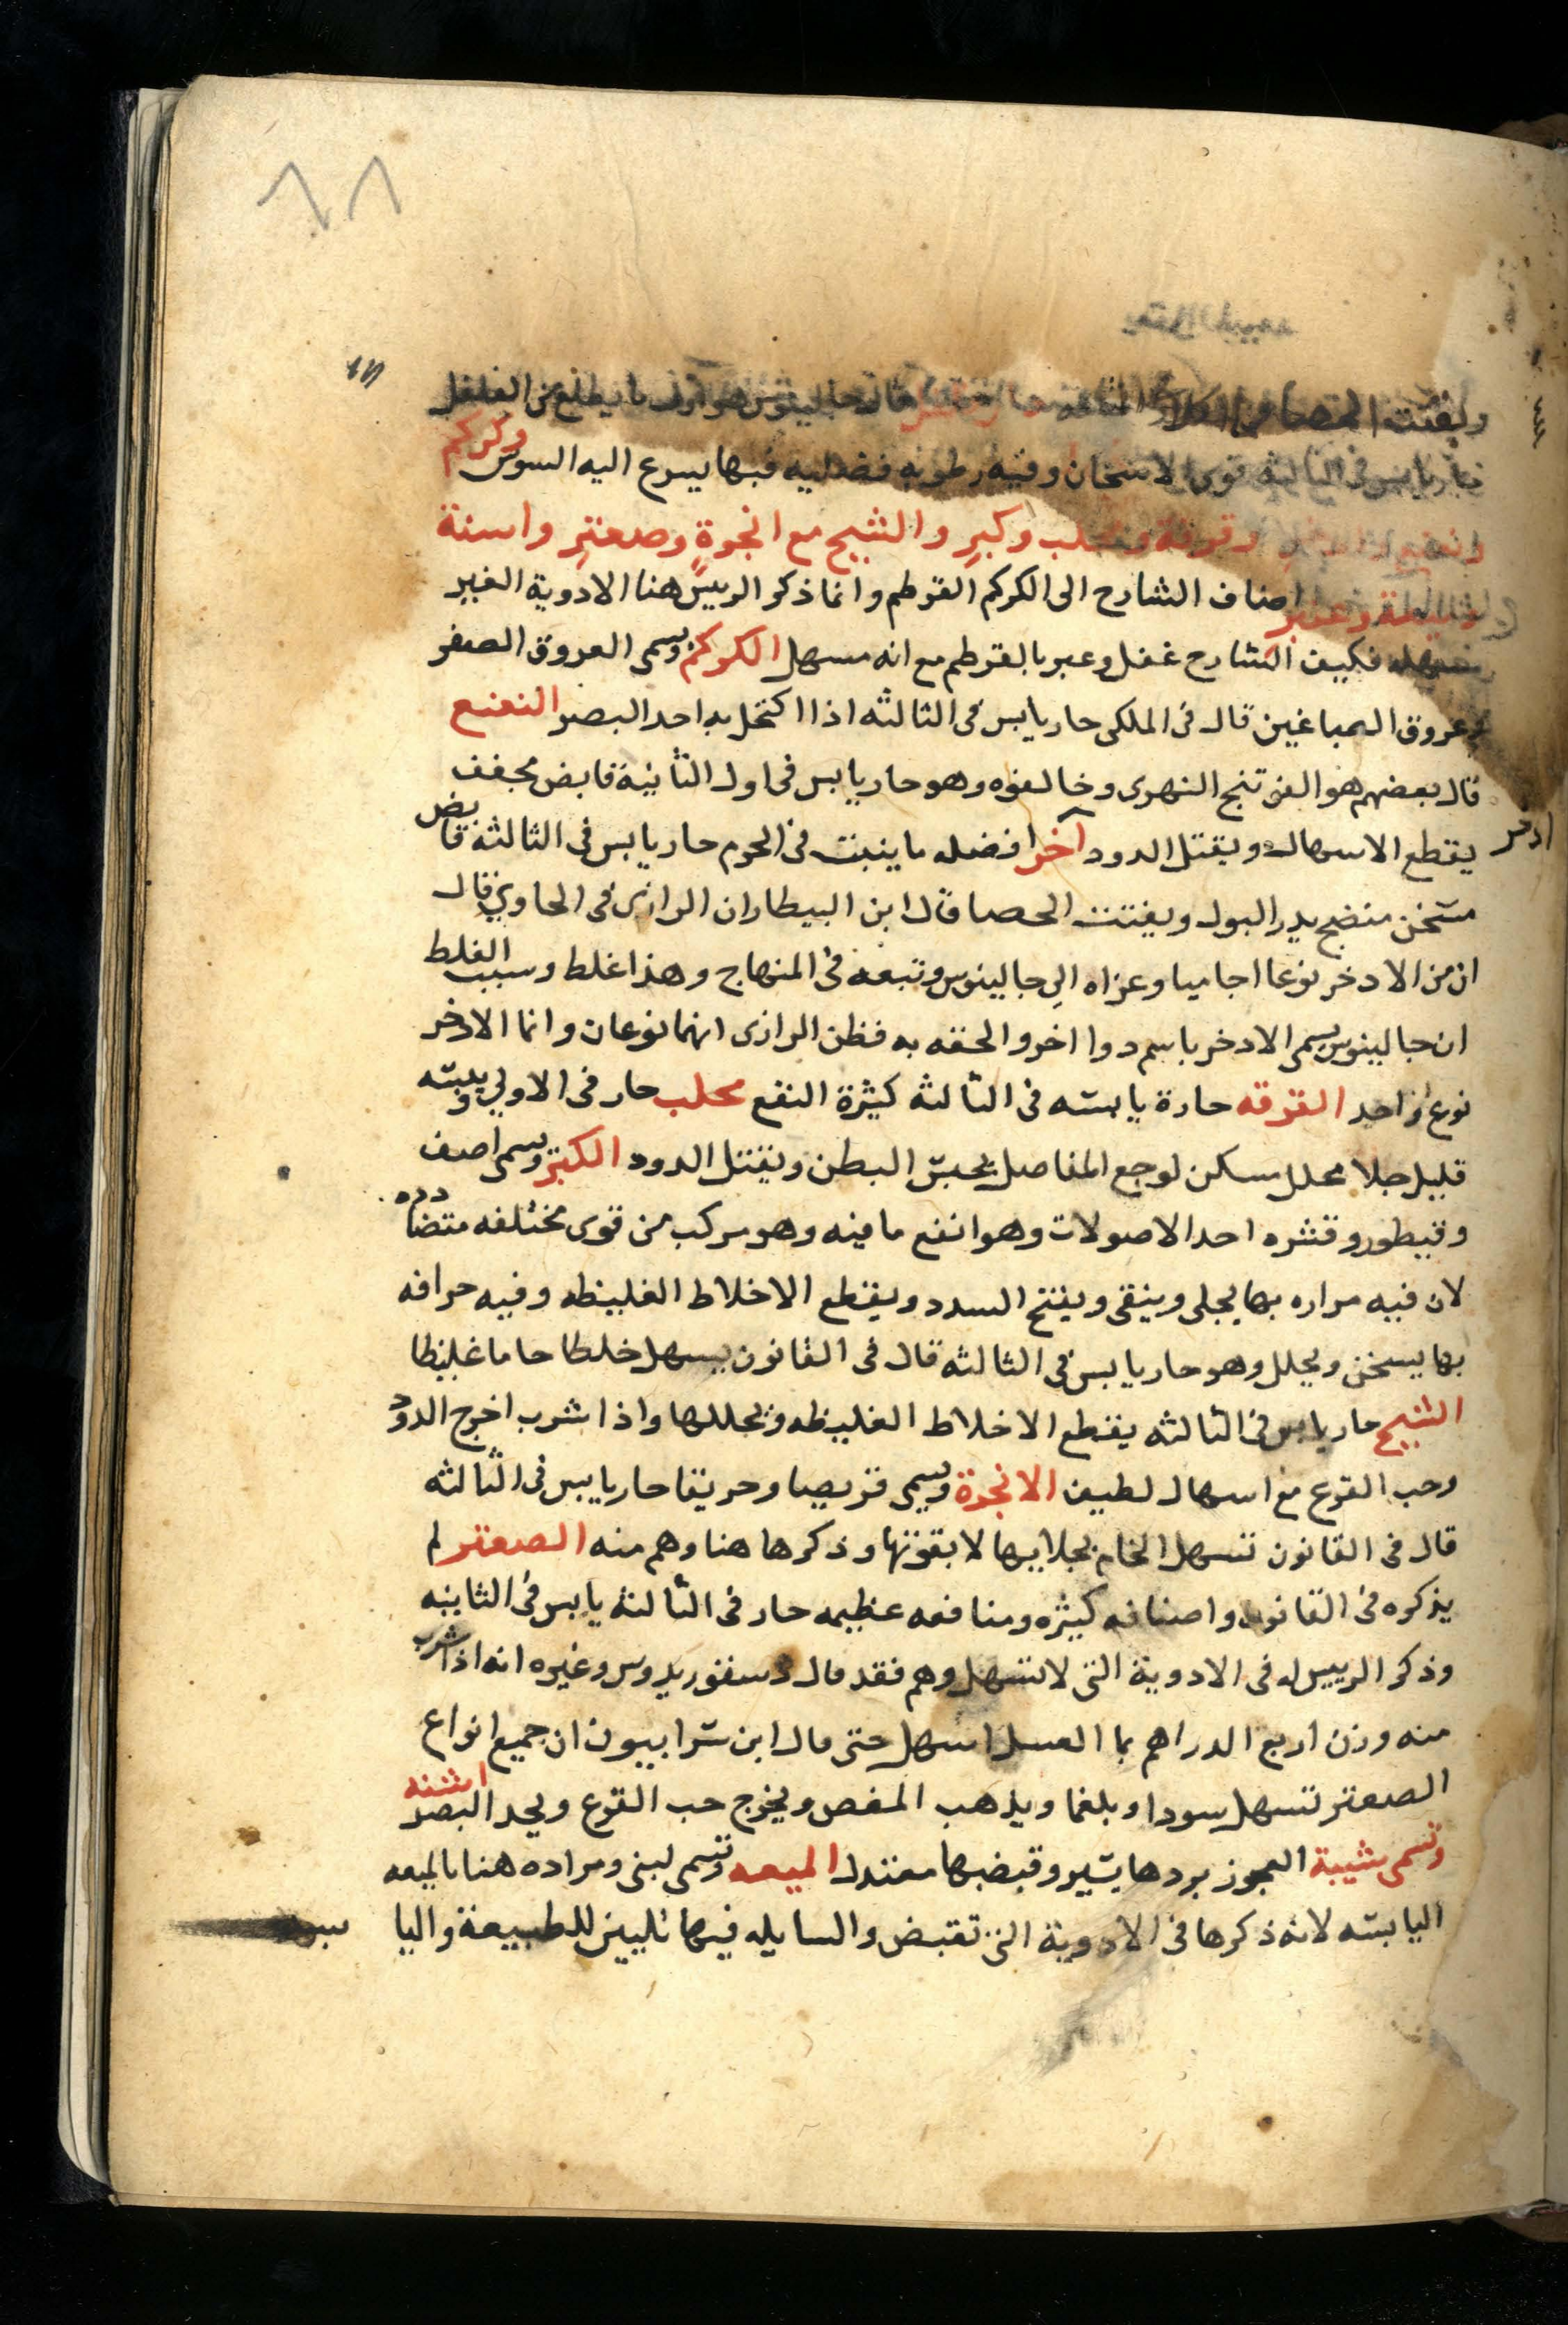 ٨٨
ويفتت الحصا من الكلا قال جالينوس هو اول ما يطلع من الفلفل
حار يابس في الثالثه قوى الاسخان وفيه رطوبه فضليه فبها يسرع اليه السوس وكركم
وقرفة ومحلب وكبر والشيح مع انجرة وصعتر واسنة
وميعة وعنبر اضاف الشارح الى الكركم القرطم وانما ذكر الرييس هنا الادوية الغير
مسهله فكيف الشارح غفل وعبر بالقرطم مع انه مسهل الكركم ويسمى العروق الصفر
وعروق الصباغين قال في الملكى حار يابس في الثالثه اذا اكتحل به احد البصر النعنع
قال بعضهم هو الفوتنج النهرى وخالفوه وهو حار يابس في اول الثانية قابض مجفف
يقطع الاسهال ويقتل الدود آخر افضله ما ينبت في الحرم حار يابس في الثالثه قابض
ادخر
مسخن منضج يدر البول ويفتت الحصا قال ابن البيطار ان الرازى في الحاوي قال
ان من الادخر نوعا اجاميا وعزاه الى جالينوس وتبعه في المنهاج وهذا غلط وسبب الغلط
ان جالينوس يسمى الادخر باسم دوا اخر والحقه به فظن الرازى انهما نوعان وانما الادخر
نوع واحد القرفه حارة يابسه في الثالثه كثيرة النفع محلب حار في الاولي يبسه
قليل جلا محلل مسكن لوجع المفاصل يحبس البطن ويقتل الدود الكبر ويسمى اصف
وقيطور وقشره احد الاصولات وهو انفع ما فيه وهو مركب من قوى مختلفه متضادده
لان فيه مراره بها يجلى وينقى ويفتح السدد ويقطع الاخلاط الغليظه وفيه حرافه
بها يسخن ويحلل وهو حار يابس في الثالثه قال في القانون يسهل خلطا خاما غليظا
الشيح حار يابس في الثالثه يقطع الاخلاط الغليظه ويحللها واذا شرب اخرج الدود
وحب القرع مع اسهال لطيف الانجرة ويسمى قريصا وحريقا حار يابس في الثالثه
قال في القانون تسهل الخام بجلايها لا بقوتها وذكرها هنا وهم منه الصعتر لم
يذكره في القانون واصنافه كثيره ومنافعه عظيمه حار في الثالثه يابس في الثانيه
وذكر الرييس له في الادوية التى لا تسهل وهم فقد قال دسقوريدوس وغيره انه اذا شرب
منه وزن اربع الدراهم بما العسل اسهل حتى قال ابن سرابيون ان جميع انواع
الصعتر تسهل سودا وبلغما ويذهب المغص ويخرج حب القرع ويحد البصر اشنه
وتسمى شيبة العجوز بردها يسير وقبضها معتدل الميعه وتسمى لبنى ومراده هنا بالميعه
اليابسه لانه ذكرها في الادوية التى تقبض والسايله فيها تليين للطبيعة واليا